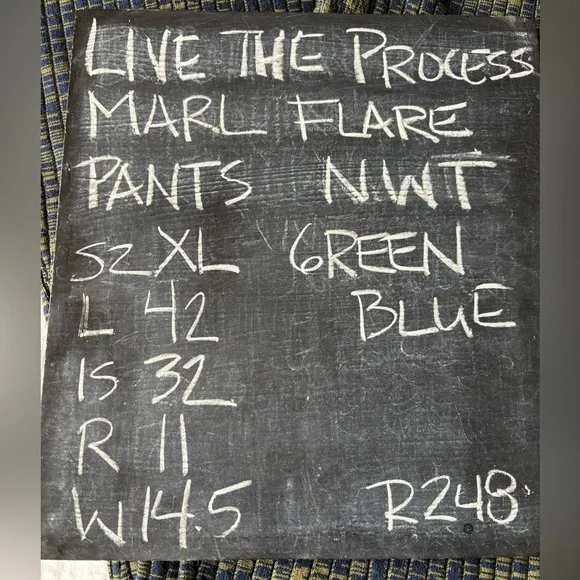 LIVE THE PROCESS
MARL FLARE
PANTS NWT
SZ XL GREEN
L 42 BLUE
IS 32
R 11
W 14.5 R248